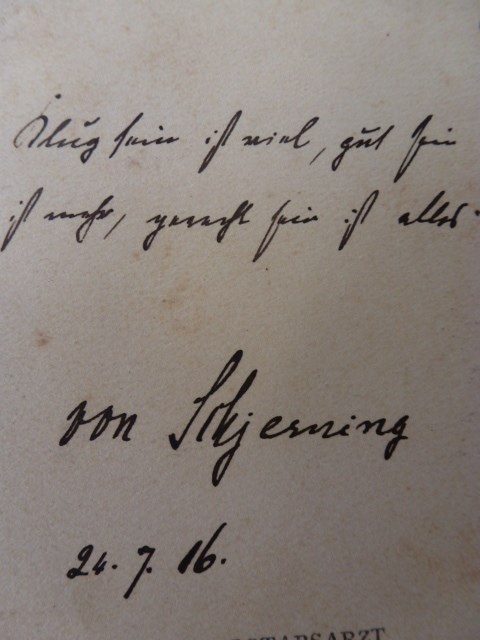 Klug sein ist viel, gut sein
ist mehr, gerecht sein ist alles.
von Schjerning
24. 7. 16.
STABSARZT